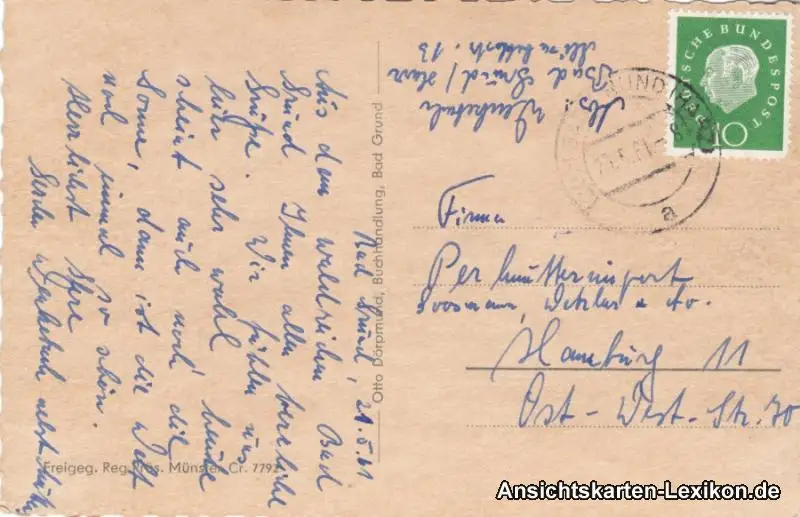 Bad Grund, 21.5.61
Aus dem waldreichen Bad
Grund Ihnen allen herzliche
Grüße. Wir fühlen uns
hier sehr wohl. heute
scheint auch noch die
Sonne, dann ist die Welt
noch einmal so schön.
Herzlichst Ihre
Abs.
Bad Grund / Harz
13
Otto Dörpmund, Buchhandlung, Bad Grund
Freigeg. Reg. Präs. Münster Cr. 7792
DEUTSCHE BUNDESPOST
10
GRUND (HARZ)
21.5.61
a
Firma
Perlmutterimport
Hamburg 11
Ost-West-Str. 70
Ansichtskarten-Lexikon.de